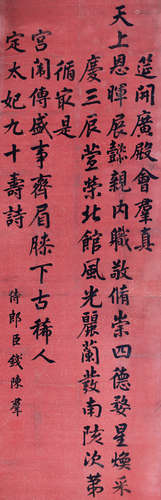 筵開廣殿會羣真
天上恩暉展懿親內職敬脩崇四德婺星煥采
慶三辰萱榮北館風光麗蘭蓺南陔次第
循家是
宮闈傳盛事齊眉膝下古稀人
定太妃九十壽詩
侍郎臣錢陳羣